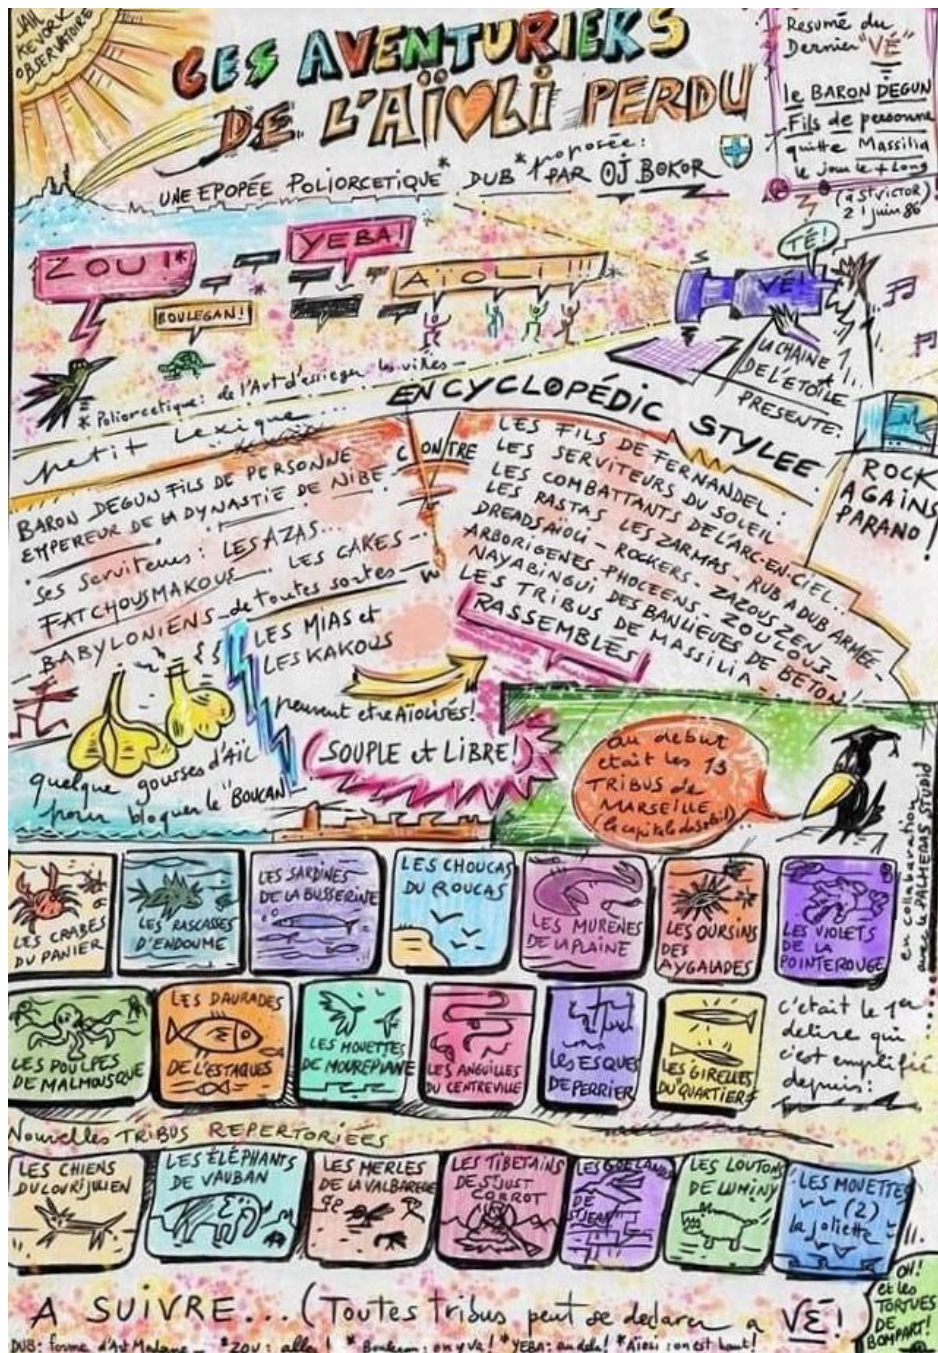 JAH
KEVORK
OBSERVATOIRE
LES AVENTURIERS
DE L'AÏOLI PERDU
UNE EPOPÉE POLIORCETIQUE* DUB *poposée:
PAR OJ BOKOR
Resumé du
Dernier "VÉ"
le BARON DEGUN
Fils de personne
quitte Massilia
le jour le + Long
(a St VICTOR)
21 juin 86
ZOU!*
YEBA!
AÏOLI!!!*
BOULEGAN!
TÉ!
VÉ!
LA CHAINE
DE L'ETOILE
PRESENTE:
* Poliorcetique: de l'Art d'assieger les villes
ENCYCLOPÉDIC STYLEE
petit Lexique...
ROCK
AGAINS
PARANO!
CONTRE
BARON DEGUN FILS DE PERSONNE
EMPEREUR DE LA DYNASTIE DE NIBE.
ses serviteurs: LES AZAS...
FATCHOUSMAKOUS LES CAKES
BABYLONIENS de toutes sortes
LES MIAS et
LES KAKOUS
peuvent etre AÏOLISÉS!
SOUPLE et LIBRE!
LES FILS DE FERNANDEL:
LES SERVITEURS DU SOLEIL:
LES COMBATTANTS DE L'ARC-EN-CIEL...
LES RASTAS LES ZARMAS - RUB A DUB ARMÉE -
DREADSAÏOLI - ROCKERS - ZAZOUS ZEN -
ARBORIGENES PHOCEENS - ZOULOUS -
NAYABINGUI DES BANLIEUES DE BETON!
LES TRIBUS DE MASSILIA -
RASSEMBLÉS
quelque gousses d'AÏL
pour bloquer le "BOUCAN"
au debut
etait les 13
TRIBUS de
MARSEILLE
(la capitale du soleil)
en collaboration
avec le PALMEDAS STUPID
LES CRABES
DU PANIER
LES RASCASSES
D'ENDOUME
LES SARDINES
DE LA BUSSERINE
LES CHOUCAS
DU ROUCAS
LES MURENES
DE LA PLAINE
LES OURSINS
DES
AYGALADES
LES VIOLETS
DE LA
POINTEROUGE
LES POULPES
DE MALMOUSQUE
LES DAURADES
DE L'ESTAQUES
LES MOUETTES
DE MOUREPIANE
LES ANGUILLES
DU CENTREVILLE
LES ESQUES
DE PERRIER
LES GIRELLES
DU QUARTIER
c'etait le 1er
delire qui
c'est emplifié
depuis:
Nouvelles TRIBUS REPERTORIÉES
LES CHIENS
DU LOUBIJULIEN
LES ÉLÉPHANTS
DE VAUBAN
LES MERLES
DE LA VALBARELLE
LES TIBETAINS
DE ST JUST
COROT
LES GOELANDS
DE
ST JEAN
LES LOUTONS
DE LUMINY
LES MOUETTES
(2)
la Joliette
A SUIVRE... (Toutes tribus peut se declarer a VÉ!
OH!
et les
TORTUES
DE
BOMPART!
DUB: forme d'Art Moderne - *ZOU: allez! * Boulegan: on y va! * YEBA: au dela! *Aïoli: on est haut!